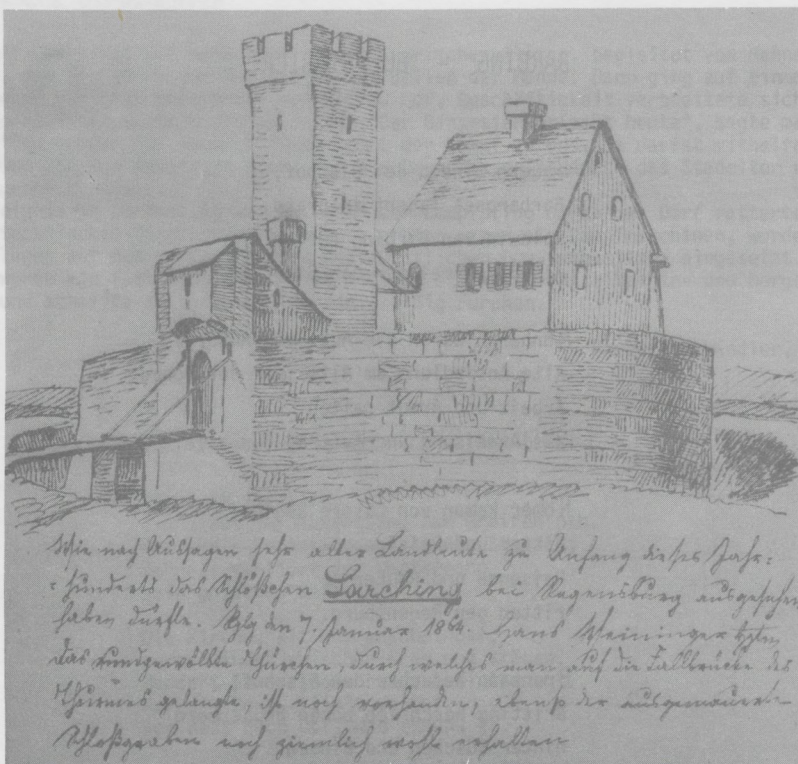 Wie nach Aussagen sehr alter Landleute zu Anfang dieses Jahr=
=hunderts das Schlößchen Sarching bei Regensburg ausgesehen
haben dürfte. Rgbg den 7. Januar 1864. Hans Weininger
das rundgewölbte Thürchen, durch welches man auf die Fallbrücke des
Thurmes gelangte, ist noch vorhanden, ebenso der ausgemauerte
Schloßgraben noch ziemlich wohl erhalten